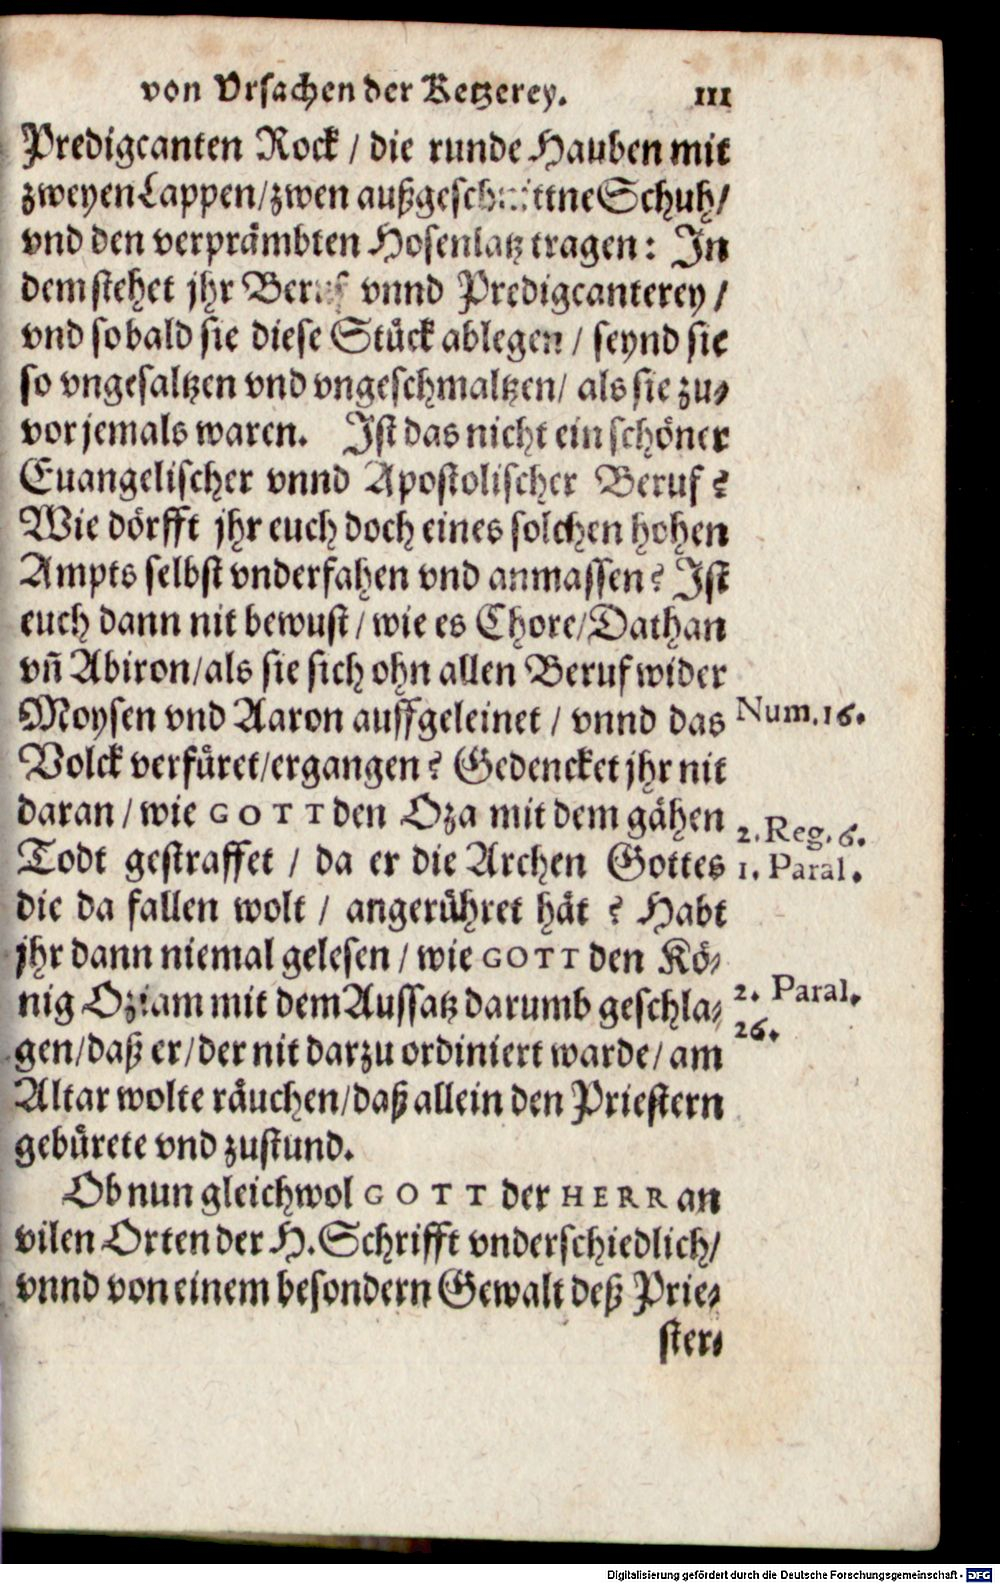 von Vrsachen der Ketzerey. 111
Predigcanten Rock / die runde Hauben mit
zweyen Lappen/zwen außgeschnittne Schuh/
vnd den verprämbten Hosenlatz tragen: In
dem stehet jhr Beruf vnnd Predigcanterey /
vnd so bald sie diese Stück ablegen / seynd sie
so vngesaltzen vnd vngeschmaltzen/ als sie zu-
vor jemals waren. Ist das nicht ein schöner
Euangelischer vnnd Apostolischer Beruf?
Wie dörfft jhr euch doch eines solchen hohen
Ampts selbst vnderfahen vnd anmassen? Ist
euch dann nit bewust / wie es Chore/Dathan
vñ Abiron/als sie sich ohn allen Beruf wider
Moysen vnd Aaron auffgeleinet / vnnd das Num.16.
Volck verfüret/ergangen? Gedencket jhr nit
daran / wie GOTT den Oza mit dem gähen 2. Reg. 6.
Todt gestraffet / da er die Archen Gottes 1. Paral.
die da fallen wolt / angerühret hät ? Habt
jhr dann niemal gelesen / wie GOTT den Kö-
nig Oziam mit dem Aussatz darumb geschla- 2. Paral.
gen/daß er/der nit darzu ordiniert warde/ am 26.
Altar wolte räuchen/daß allein den Priestern
gebürete vnd zustund.
Ob nun gleichwol GOTT der HERR an
vilen Orten der H. Schrifft vnderschiedlich/
vnnd von einem besondern Gewalt deß Prie-
ster-
Digitalisierung gefördert durch die Deutsche Forschungsgemeinschaft - DFG